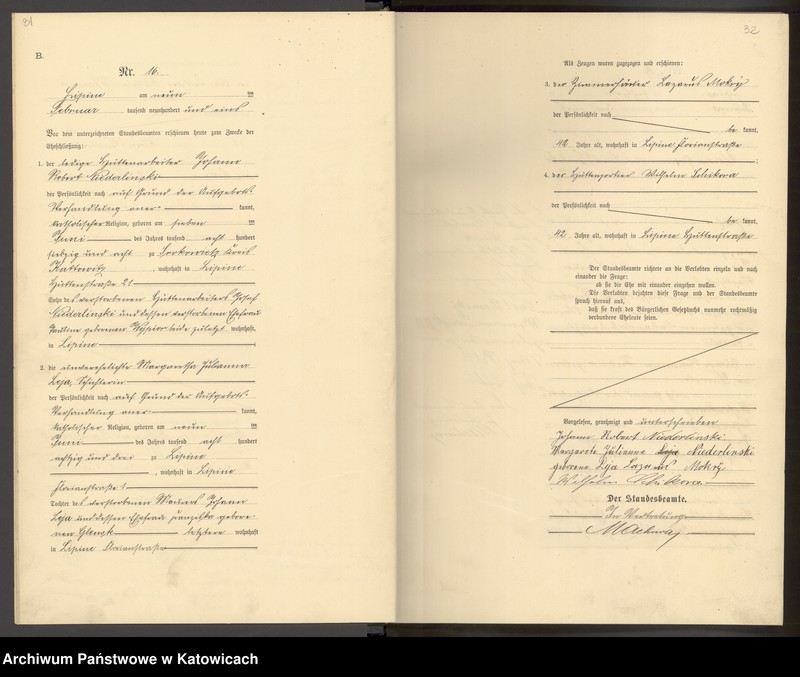 81
B.
Nr. 16.
Lipine am neun ten
Februar tausend neunhundert und eins
Vor dem unterzeichneten Standesbeamten erschienen heute zum Zwecke der
Eheschließung:
1. der ledige Hüttenarbeiter Johann
Robert Niederlinski
der Persönlichkeit nach auf Grund der Aufgebots-
Verhandlung aner- kannt,
katholischer Religion, geboren am sieben ten
Juni des Jahres tausend acht hundert
siebzig und acht zu Kreis
Kattowitz, wohnhaft in Lipine
Hüttenstraße 21
Sohn des verstorbenen Hüttenarbeiters Josef
Niederlinski und dessen verstorbenen Ehefrau
Pauline geborenen beide zuletzt wohnhaft
in Lipine
2. die unverehelichte Margaretha Julianna
Loja,
der Persönlichkeit nach auf Grund der Aufgebots-
Verhandlung aner- kannt,
katholischer Religion, geboren am neun ten
Juni des Jahres tausend acht hundert
achtzig und drei zu Lipine
, wohnhaft in Lipine
Florianstraße 1
Tochter des verstorbenen Johann
Loja und dessen Ehefrau gebore-
nen letztere wohnhaft
in Lipine Florianstraße
32
Als Zeugen waren zugezogen und erschienen:
3. der Zimmerhäuer Lazarus Mokry
der Persönlichkeit nach
be kannt,
42 Jahre alt, wohnhaft in Lipine Florianstraße
;
4. der Hüttenportier Wilhelm
der Persönlichkeit nach
be kannt,
42 Jahre alt, wohnhaft in Lipine Hüttenstraße
Der Standesbeamte richtete an die Verlobten einzeln und nach
einander die Frage:
ob sie die Ehe mit einander eingehen wollen.
Die Verlobten bejahten diese Frage und der Standesbeamte
sprach hierauf aus,
daß sie kraft des Bürgerlichen Gesetzbuchs nunmehr rechtmäßig
verbundene Eheleute seien.
Vorgelesen, genehmigt und unterschrieben
Johann Robert Niederlinski
Margarete Julianne Loja Niederlinski
geborene Loja Lazarus Mokry
Wilhelm
Der Standesbeamte.
In Vertretung
Archiwum Państwowe w Katowicach